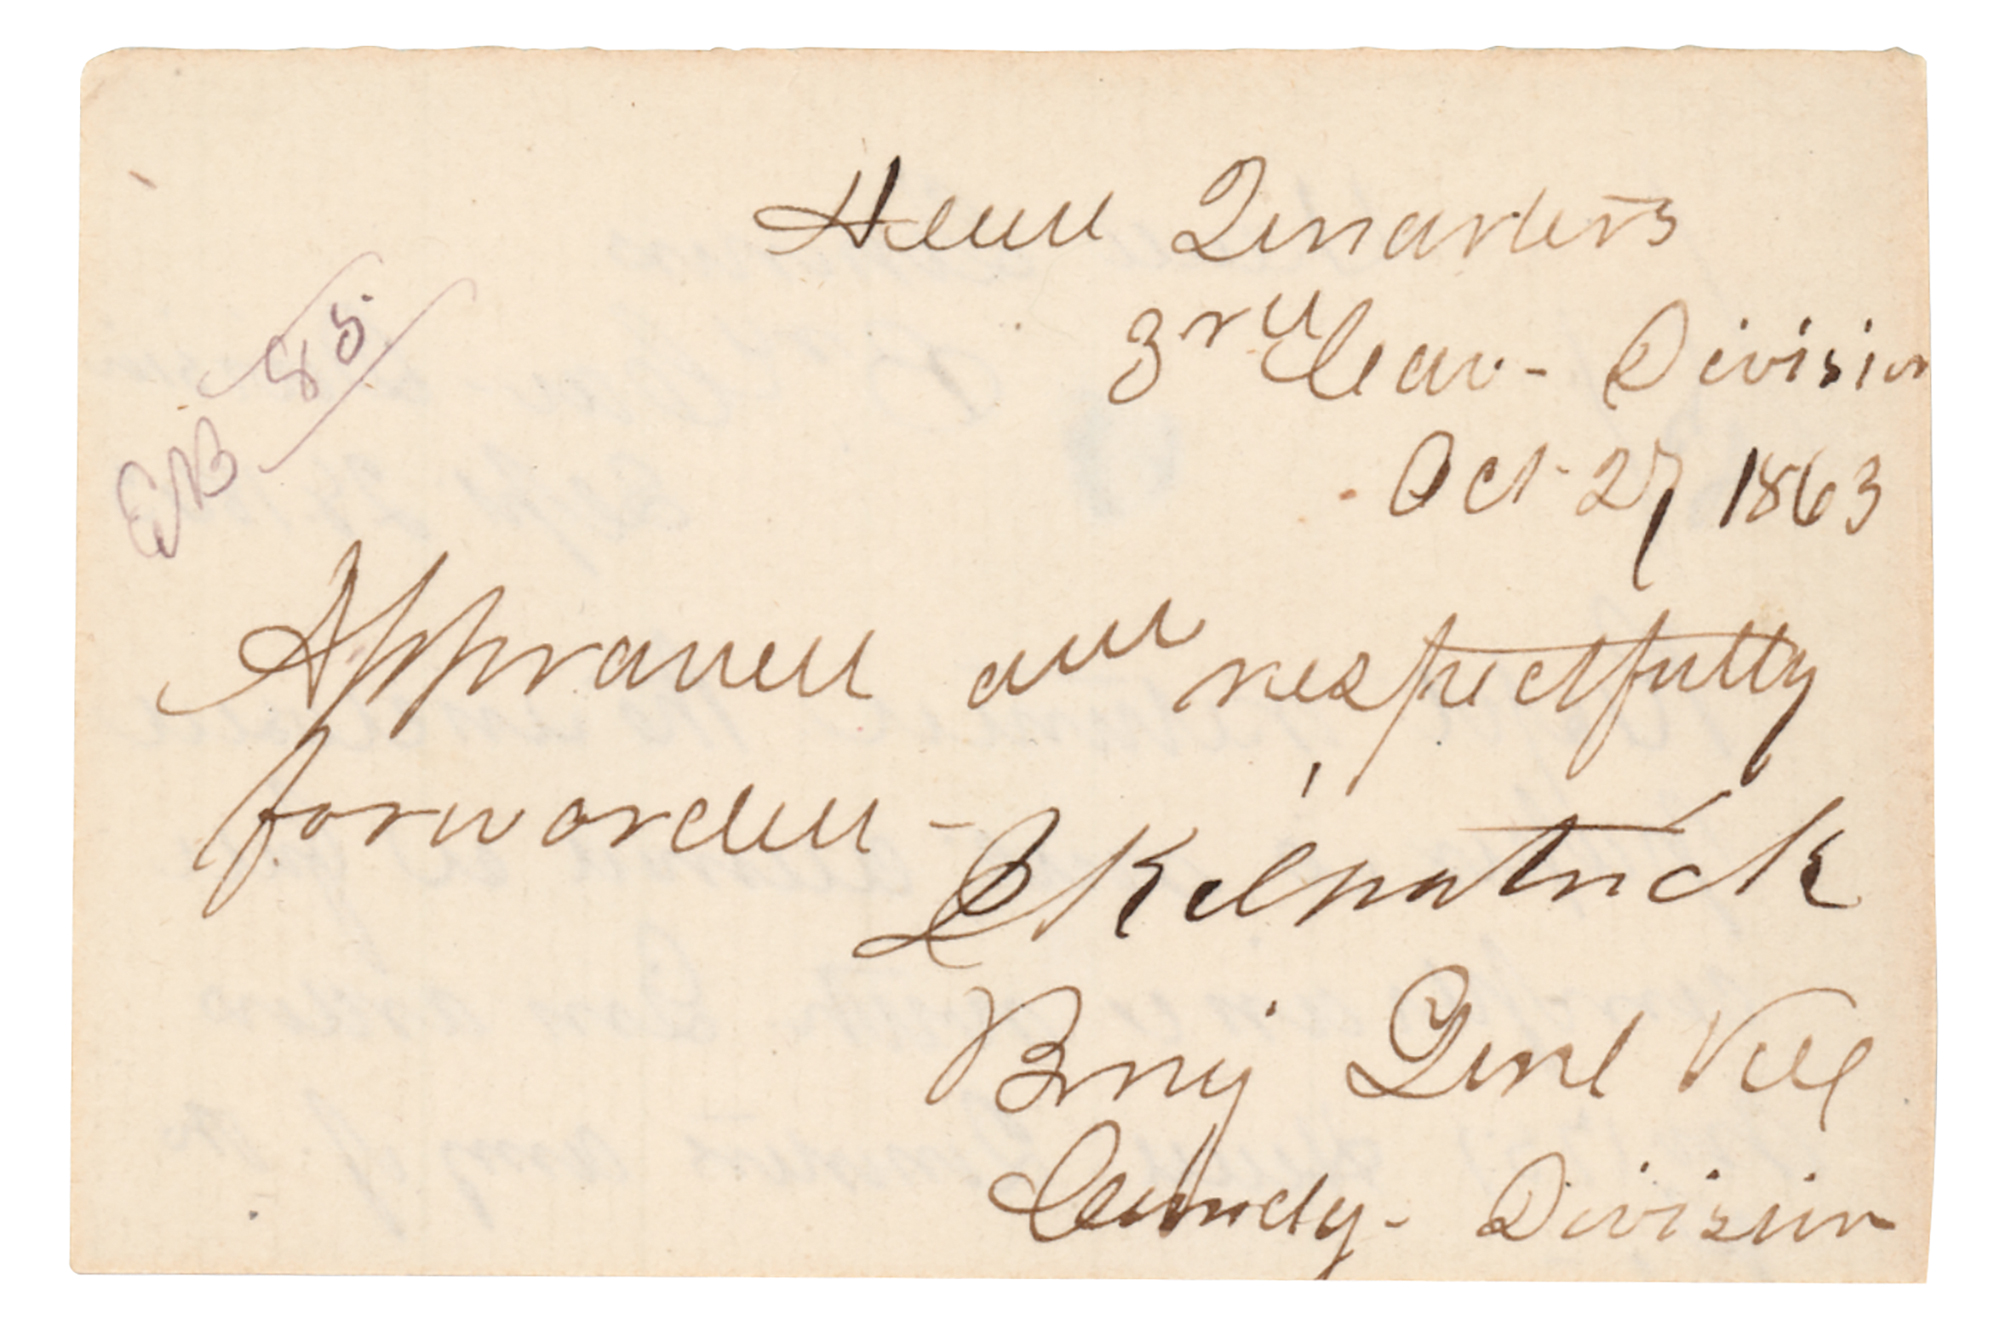 Head Quarters
3rd Cav. - Division
Oct. 27, 1863
Approved and respectfully
forwarded -
Kilpatrick
Brig Genl Vol
Comdg - Division
85.